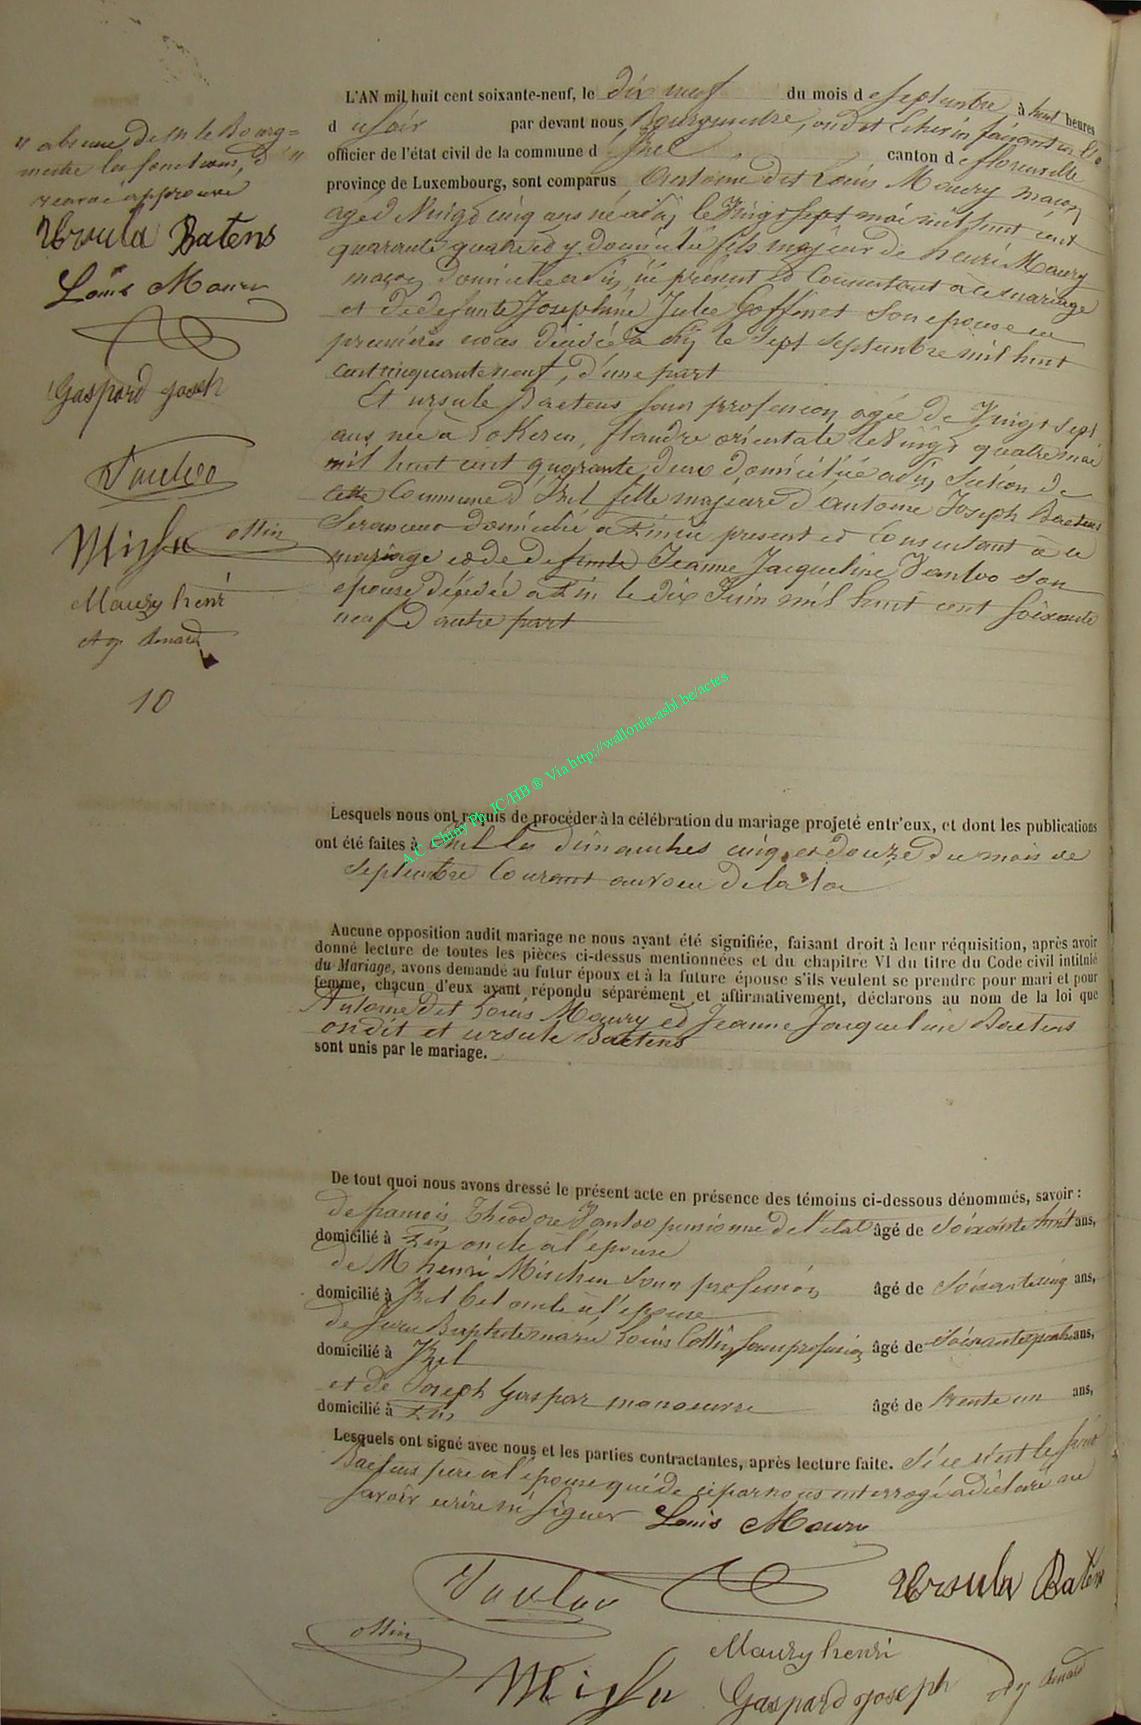 L'AN mil huit cent soixante-neuf, le dix neuf du mois d e Septembre à huit heures
d u Soir par devant nous Bourgmestre,
officier de l'état civil de la commune d Izel canton d e florenville
province de Luxembourg, sont comparus Antoine dit Louis Maury maçon
agé de Vingt cinq ans né le Vingt Sept mai mil huit cent
quarante quatre et y domicilié fils majeur de henri Maury
maçon domicilié ici présent et Consentant à ce mariage
et de defunte Joséphine Julie Goffinet Son epouse en
premières noces décédée le Sept Septembre mil huit
cent cinquante neuf, d'une part
Et ursule Baetens Sans profession agée de Vingt Sept
ans née à Lokeren, flandre orientale le Vingt quatre mai
mil huit cent quarante deux domiciliée Section de
cette Commune d'Izel fille majeure d'antoine Joseph Baetens
domicilié present et Consentant à ce
mariage et de defunte Jeanne Jacqueline Vanloo Son
epouse décédée le Dix Juin mil huit cent Soixante
neuf d'autre part
absence de M le Bourg=
mestre les fonctions, d
renvoi approuvé
Ursula Batens
Louis Maury
Gaspard joseph
Vanloo
ottin
Maury henri
10
A.C. Chiny Ph. JC/HB ® Via http://wallonia-asbl.be/actes
Lesquels nous ont requis de procéder à la célébration du mariage projeté entr'eux, et dont les publications
ont été faites à Izel les dimanches cinq et douze du mois de
Septembre Courant au voeu de la loi
Aucune opposition audit mariage ne nous ayant été signifiée, faisant droit à leur réquisition, après avoir
donné lecture de toutes les pièces ci-dessus mentionnées et du chapitre VI du titre du Code civil intitulé
du Mariage, avons demandé au futur époux et à la future épouse s'ils veulent se prendre pour mari et pour
femme, chacun d'eux ayant répondu séparément et affirmativement, déclarons au nom de la loi que
Antoine dit Louis Maury et Jeanne Jacqueline Baetens
ondit et ursule Baetens
sont unis par le mariage.
De tout quoi nous avons dressé le présent acte en présence des témoins ci-dessous dénommés, savoir :
de françois Théodore Vanloo pensionné de l'état âgé de Soixante huit ans,
domicilié à oncle à l'épouse
de M henri Sans profession âgé de Soixante cinq ans,
domicilié à Izel bel oncle à l'épouse
de Jean Baptiste marie Louis Sans profession âgé de ans,
domicilié à Izel
et de Joseph Gaspar manoeuvre âgé de trente un ans,
domicilié à
Lesquels ont signé avec nous et les parties contractantes, après lecture faite. Si ce n'est le Sieur
Baetens père à l'épouse qui de ce par nous interrogé a déclaré ne
savoir écrire ni Signer Louis Maury
Vanloo Ursula Batens
ottin Maury henri
Gaspard joseph